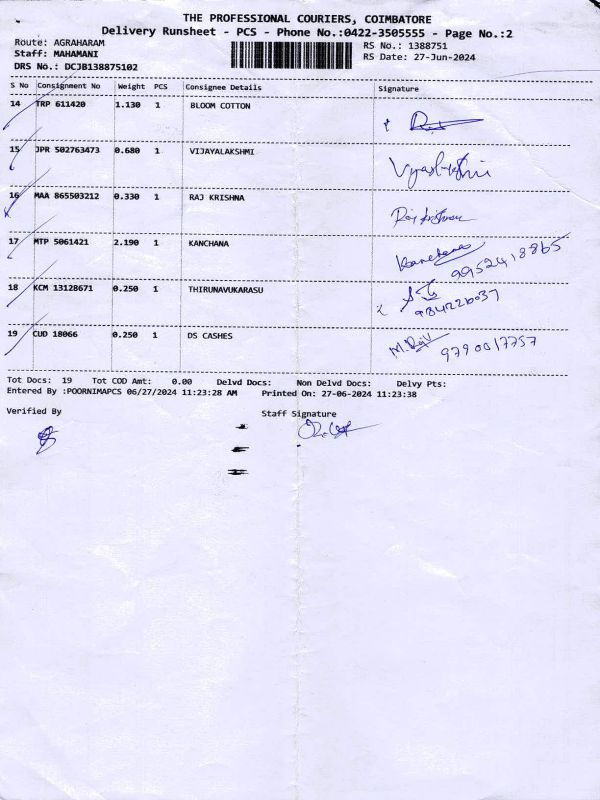 THE PROFESSIONAL COURIERS, COIMBATORE
Delivery Runsheet - PCS - Phone No.:0422-3505555 - Page No.:2
Route: AGRAHARAM
Staff: MAHAMANI
DRS No.: DCJB138875102
RS No.: 1388751
RS Date: 27-Jun-2024
S No Consignment No Weight PCS Consignee Details Signature
14 TRP 611420 1.130 1 BLOOM COTTON
15 JPR 502763473 0.680 1 VIJAYALAKSHMI
16 MAA 865503212 0.330 1 RAJ KRISHNA
17 MTP 5061421 2.190 1 KANCHANA Kanchana
9952418865
18 KCM 13128671 0.250 1 THIRUNAVUKARASU
9842226037
19 CUD 18066 0.250 1 DS CASHES M. Raj 9790017757
Tot Docs: 19 Tot COD Amt: 0.00 Delvd Docs: Non Delvd Docs: Delvy Pts:
Entered By :POORNIMAPCS 06/27/2024 11:23:28 AM Printed On: 27-06-2024 11:23:38
Verified By Staff Signature